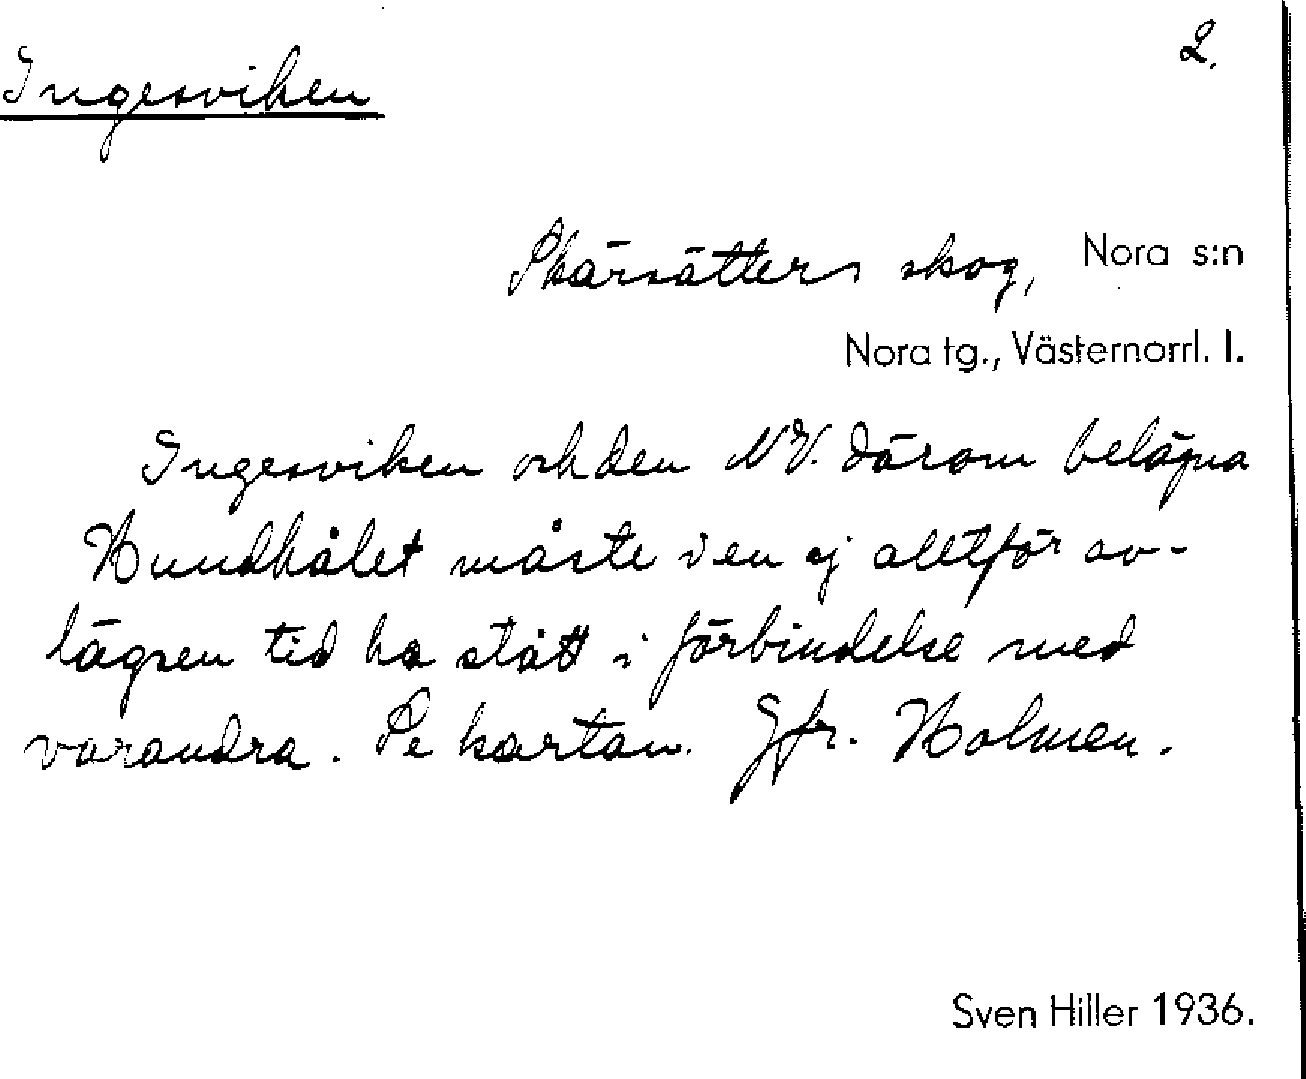 2.
Ingesviken
Skärsätters skog, Nora s:n
Nora tg., Västernorrl. l.
Ingesviken och den NV. därom belägna
Hundhålet måste i en ej alltför av-
lägsen tid ha stått i förbindelse med
varandra. Se kartan. Jfr. Holmen.
Sven Hiller 1936.